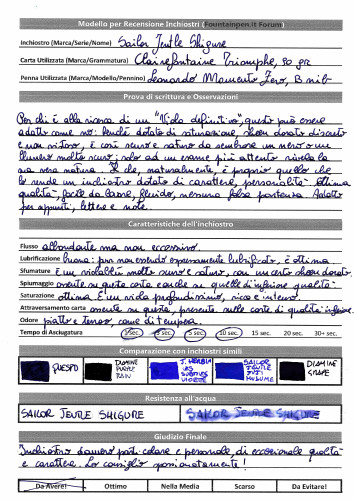 Modello per Recensione Inchiostri (Fountainpen.it Forum)
Inchiostro (Marca/Serie/Nome) Sailor Jentle Shigure
Carta Utilizzata (Marca/Grammatura) Clairefontaine Triomphe, 90 gr
Penna Utilizzata (Marca/Modello/Pennino) Leonardo Momento Zero, B nib
Prova di scrittura e Osservazioni
Per chi è alla ricerca di un "Viola definitivo", questo può essere
adatto come no. Perché dotato di saturazione, sheen dorato discreto
e non vistoso, è così scuro e saturo da sembrare un nero o un
bluenero molto scuro; solo ad un esame più attento rivela la
sua vera natura. Il che, naturalmente, è proprio quello che
lo rende un inchiostro dotato di carattere, personalità. Ottima
qualità, facile da lavare, fluido, nessuna falsa partenza. Adatto
per appunti, lettere e note.
Caratteristiche dell'inchiostro
Flusso abbondante ma non eccessivo.
Lubrificazione buona: pur non essendo espressamente lubrificato, è ottima.
Sfumature È un viola/blu molto scuro e saturo, con un certo sheen dorato.
Spiumaggio assente su questa carta anche su quelle di inferiore qualità.
Saturazione ottima. È un viola profondissimo, ricco e intenso.
Attraversamento carta assente su questa, presente sulle carte di qualità inferiore.
Odore piatto e tenue, come di tempera.
Tempo di Asciugatura 1 sec. 3 sec. 5 sec. 10 sec. 15 sec. 20 sec. 30+ sec.
Comparazione con inchiostri simili
QUESTO
DIAMINE PURPLE RAIN
J. HERBIN
SAILOR JENTLE
DIAMINE GRAPE
Resistenza all'acqua
SAILOR JENTLE SHIGURE SAILOR JENTLE SHIGURE
Giudizio Finale
Inchiostro davvero particolare e personale, di eccezionale qualità
e carattere. Lo consiglio spassionatamente!
Da Avere! Ottimo Nella Media Scarso Da Evitare!